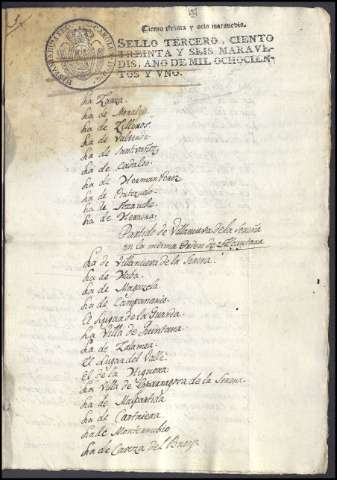 Ciento treinta y seis maravedis.
SELLO TERCERO, CIENTO
TREINTA Y SEIS MARAVE-
DIS, AÑO DE MIL OCHOCIEN-
TOS Y VNO.
La Zarza
La de
La de Zilleros
La de Valverde
La de
La de
La de Hernan Perez
La de
La de
La de Herrera
Partido de Villanueva de la Serena
en la misma Orden de Alcantara
La de Villanueva de la Serena
La de
La de Magazela
La de Campanario
El Lugar de la Guarda
La Villa de Quintana
La de Zalamea
El Lugar del Valle
El de la Higuera
La Villa de Esparragosa de la Serena
La de Malpartida
La de Castuera
La de Monterrubio
La de Caveza del Buey